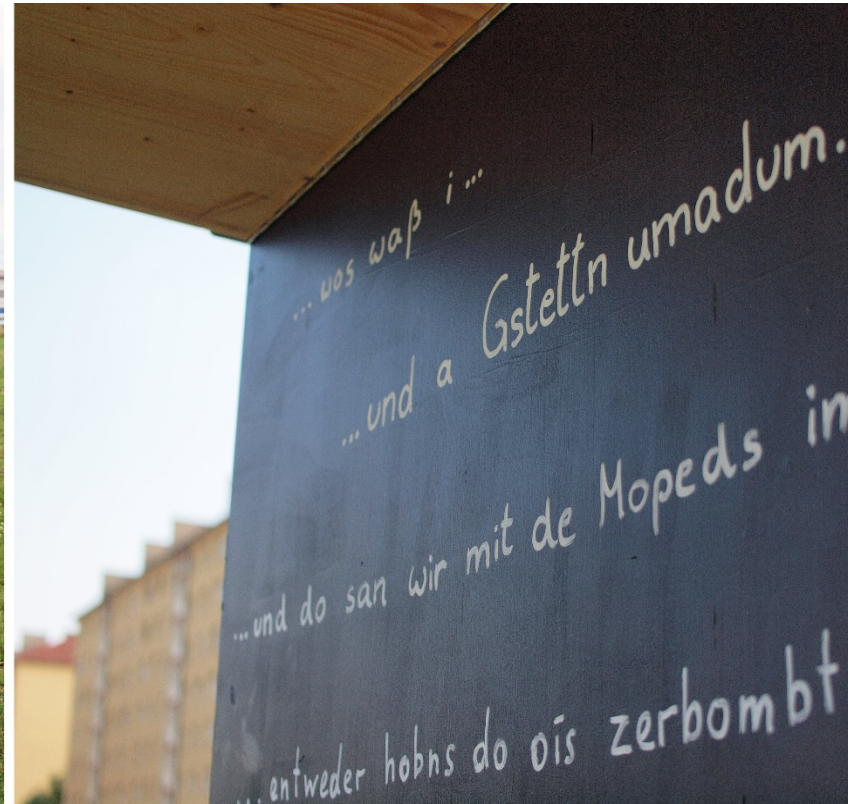 ... wos waß i ...
... und a Gstettn umadum.
... und do san wir mit de Mopeds
... entweder hobns do ois zerbombt